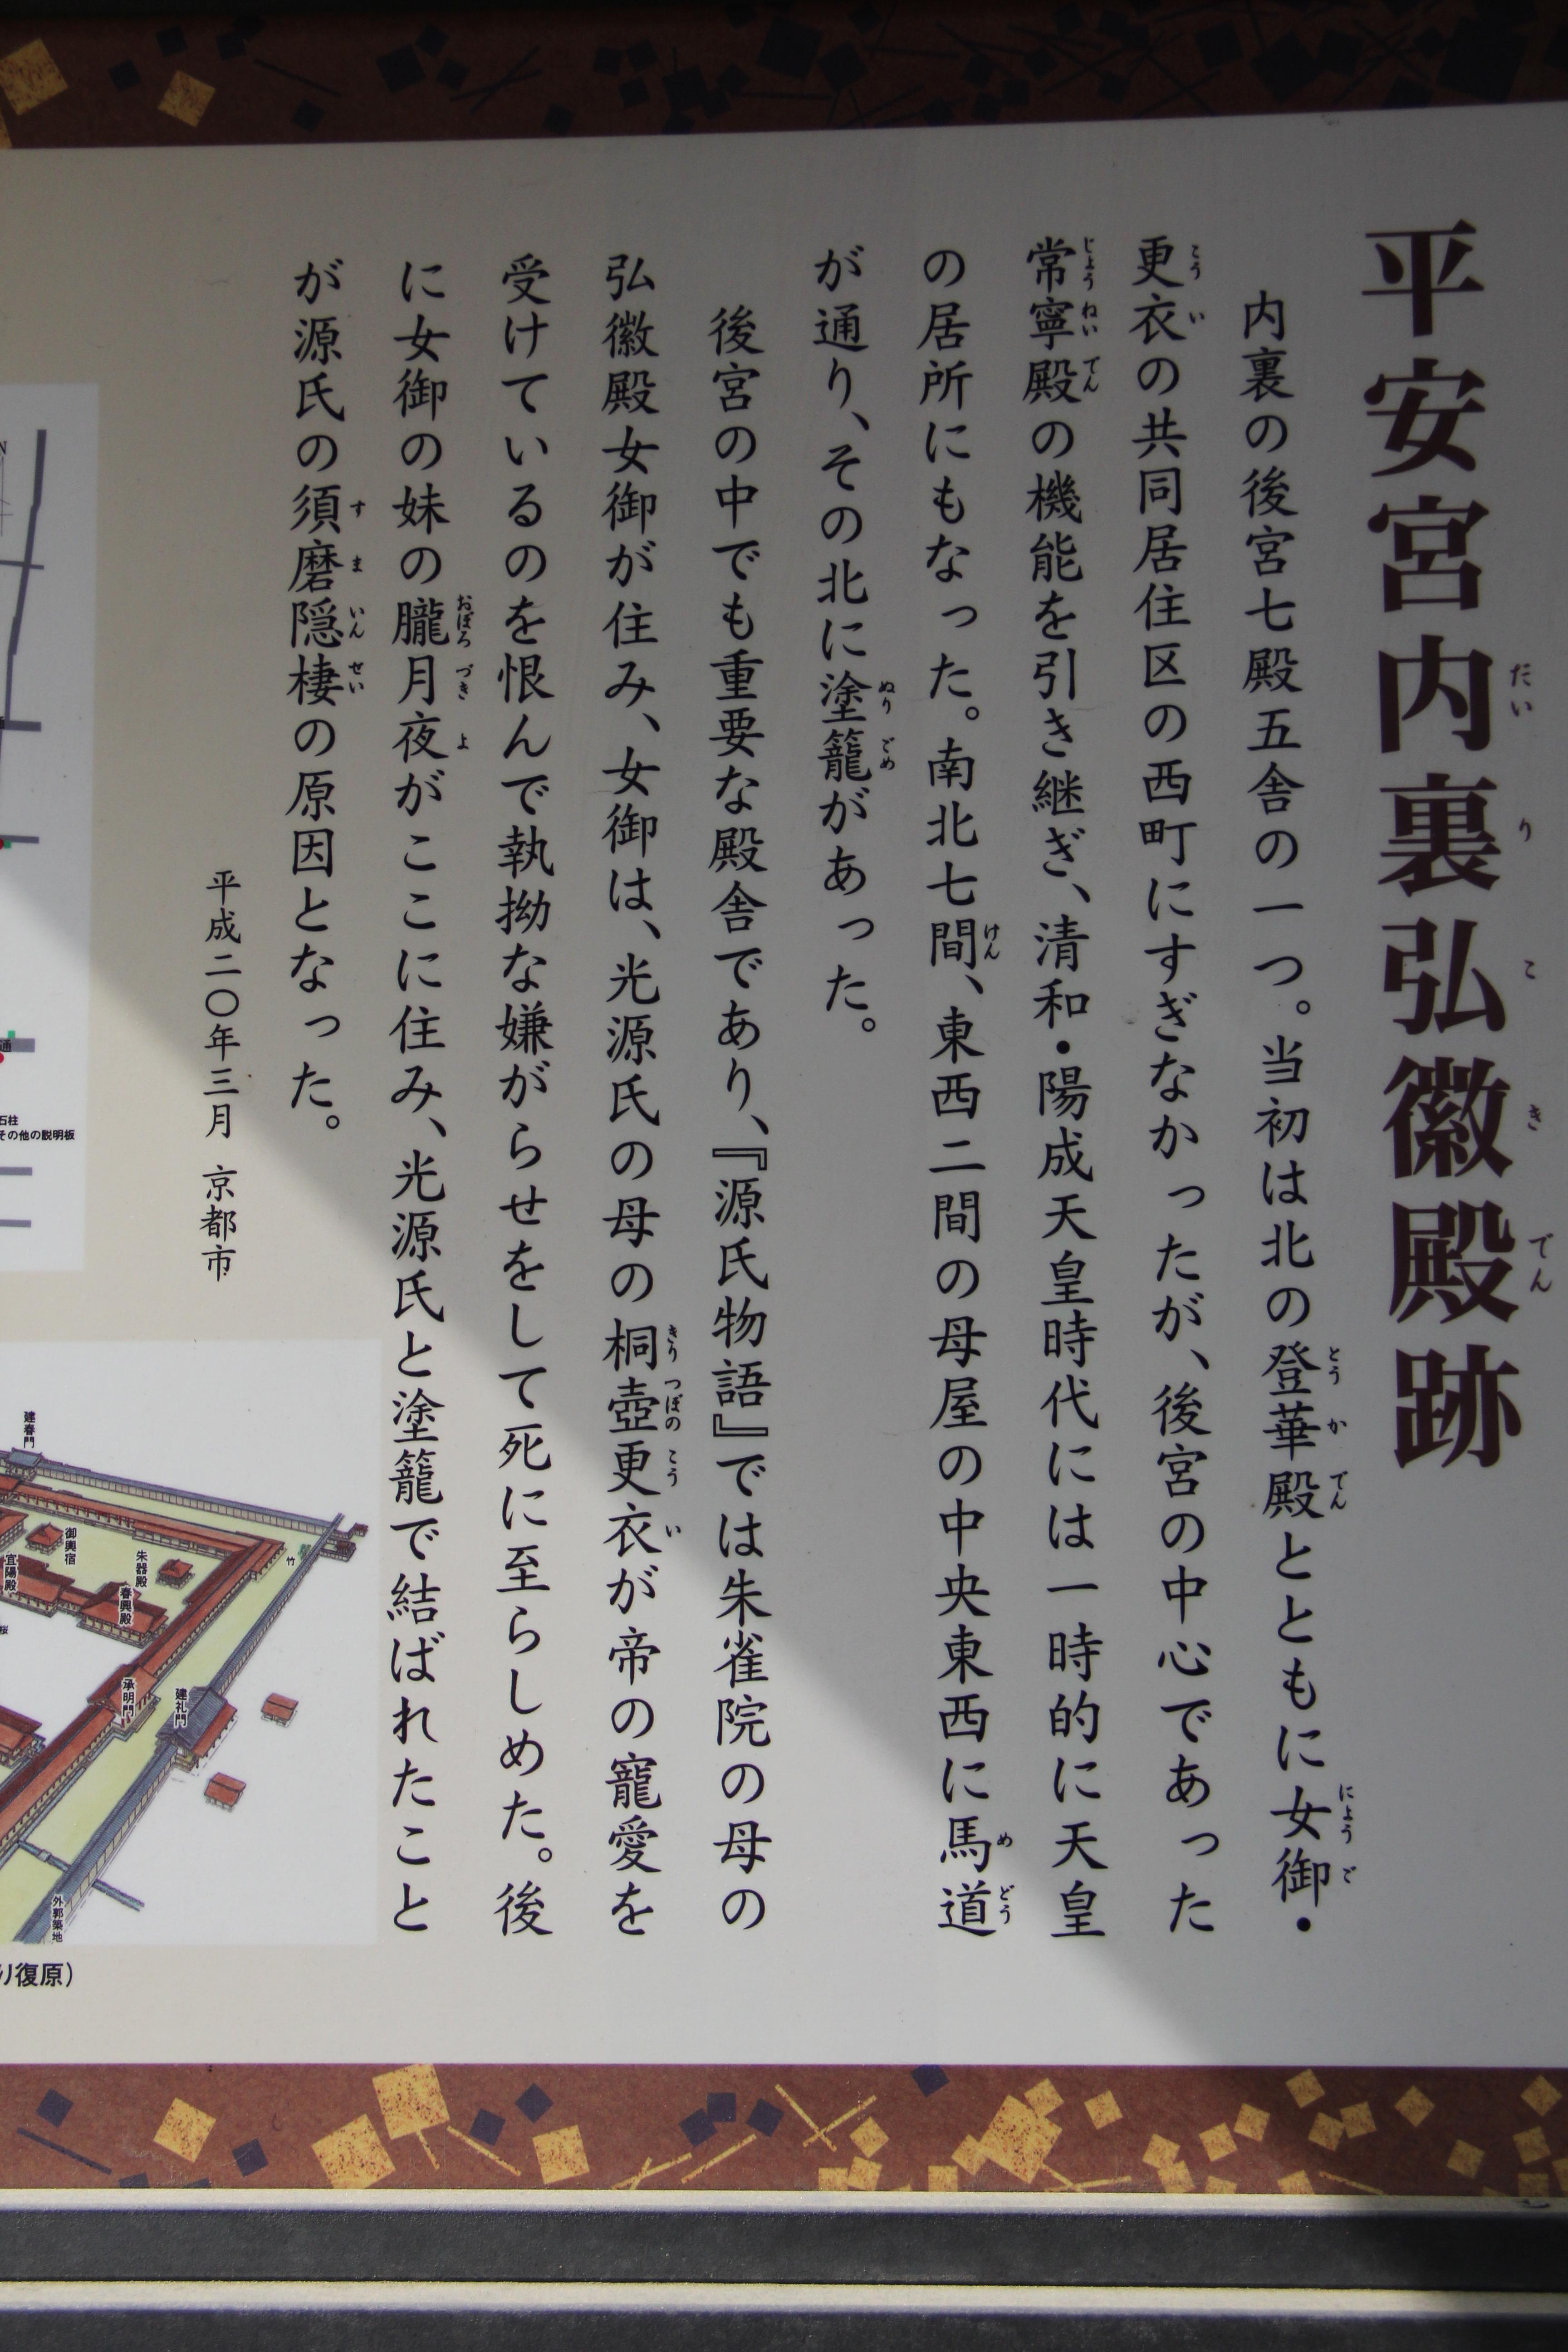 平安宮内裏弘徽殿跡
内裏の後宮七殿五舎の一つ。当初は北の登華殿とともに女御・
更衣の共同居住区の西町にすぎなかったが、後宮の中心であった
常寧殿の機能を引き継ぎ、清和・陽成天皇時代には一時的に天皇
の居所にもなった。南北七間、東西二間の母屋の中央東西に馬道
が通り、その北に塗籠があった。
後宮の中でも重要な殿舎であり、『源氏物語』では朱雀院の母の
弘徽殿女御が住み、女御は、光源氏の母の桐壺更衣が帝の寵愛を
受けているのを恨んで執拗な嫌がらせをして死に至らしめた。後
に女御の妹の朧月夜がここに住み、光源氏と塗籠で結ばれたこと
が源氏の須磨隠棲の原因となった。
平成二〇年三月 京都市
N
通
石柱
その他の説明板
建春門
御輿宿
宜陽殿
朱器殿
春興殿
竹
桜
承明門
建礼門
外郭築地
り復原）